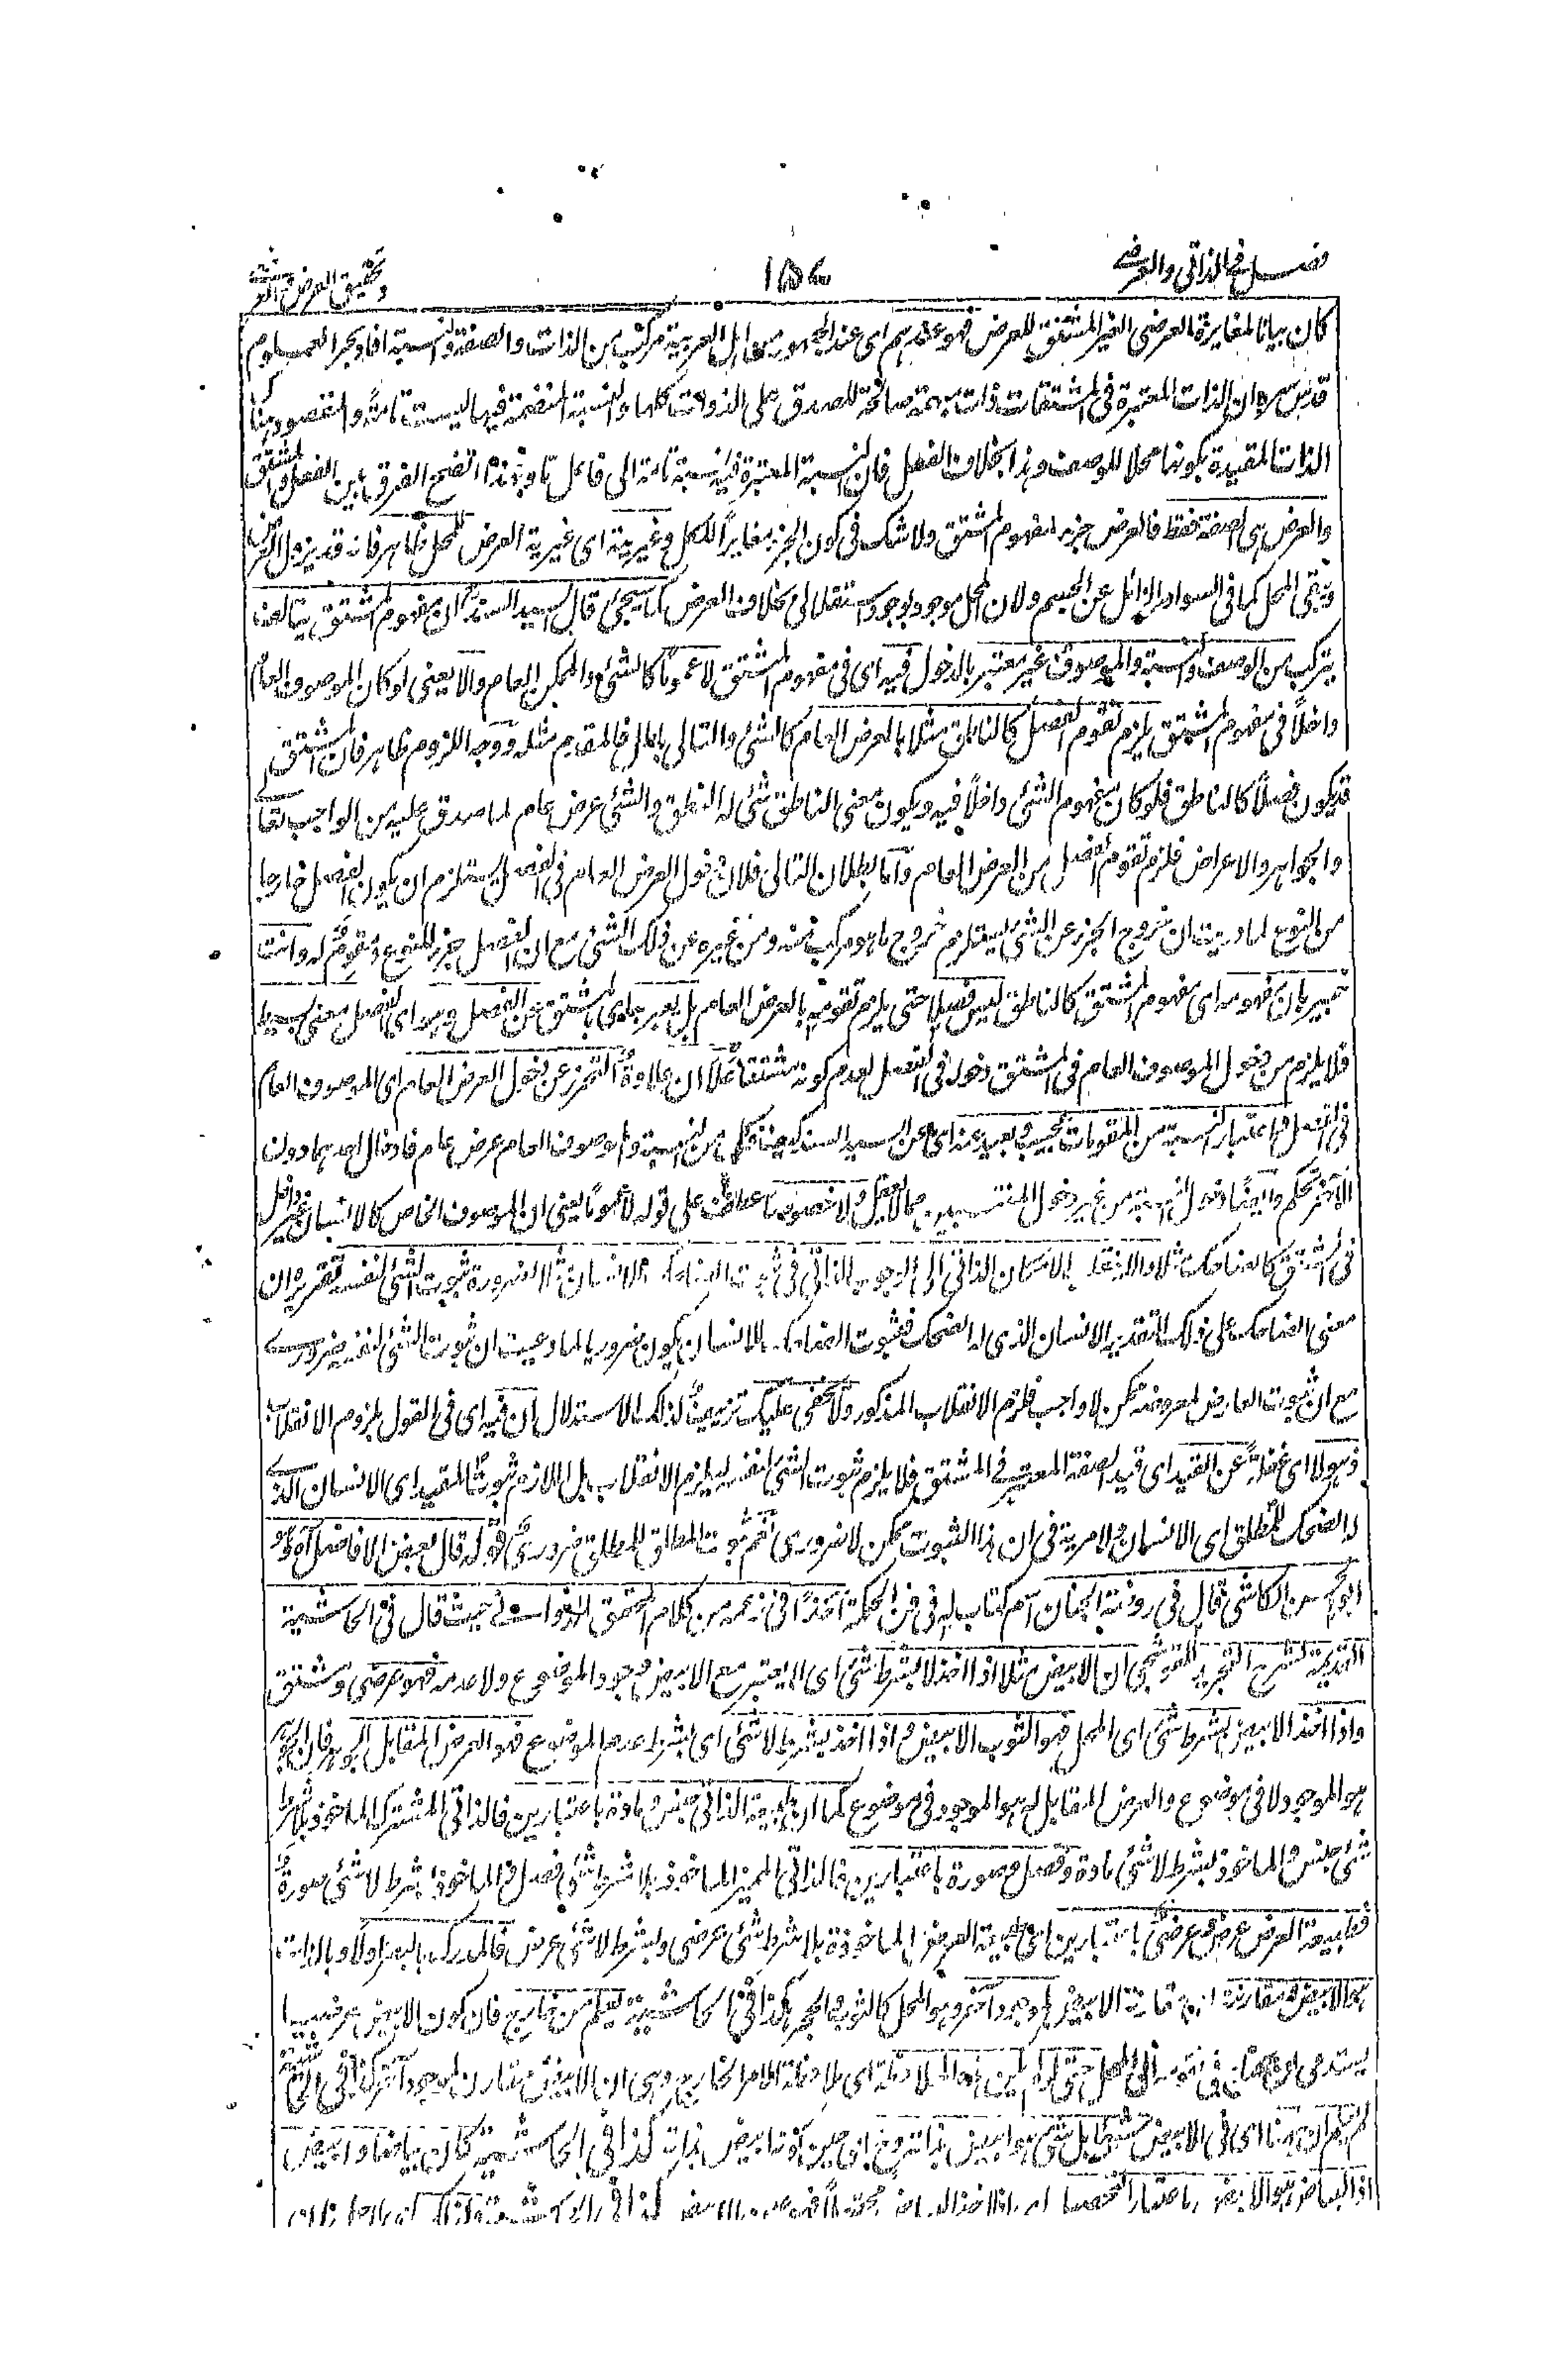 فصل في الذاتى والعرضى
١٥٧
وتحقيق العرض
كان بيانا لمغايرة العرضى الغير المشتق للعرض فهو عندهم اى عند الجمهور من اهل العربية مركب من الذات والصفة والنسبة افاد بحر العلوم
قدس سره ان الذات المعتبرة فى المشتقات ذات مبهمة صالحة للصدق على الذوات كلها والنسبة المتضمنة فيها ليست تامة والمقصود منها
الذات المقيدة بكونها محلا للوصف وهذا بخلاف الفعل فان النسبة المعتبرة فيه نسبة تامة الى فاعل ما وبهذا اتضح الفرق بين الفعل والمشتق
والعرض هى الصفة فقط فالعرض جزء لمفهوم المشتق ولا شك فى كون الجزء مغايراً للكل وغيرية اى غيرية العرض للمحل ظاهر فانه قد يزول العرض
ويبقى المحل كما فى السواد الزائل عن الجسم ولان المحل موجود بوجود استقلالى بخلاف العرض كما سيجئ قال السيد السند ان مفهوم المشتق
يتركب من الوصف والنسبة والموصوف غير معتبر بالدخول فيه اى فى مفهوم المشتق لا عموماً كالشئ والممكن العام والا يعنى لو كان الموصوف العام
داخلاً فى مفهوم المشتق يلزم تقوم الفصل كالناطق مثلا بالعرض العام كالشئ والتالى باطل فالمقدم مثله ووجه اللزوم ظاهر فان المشتق
قد يكون فصلاً كالناطق فلو كان مفهوم الشئ داخلاً فيه ويكون معنى الناطق شئ له النطق والشئ عرض عام لما صدق عليه من الواجب تعالى
والجواهر والاعراض فلزم تقوم الفصل من العرض العام واما بطلان التالى فلان دخول العرض العام فى الفصل يستلزم ان يكون الفصل خارجا
من النوع لما دريت ان خروج الجزء عن الشئ يستلزم خروج ما هو مركب منه ومن غيره عن ذلك الشئ مع ان الفصل جزء للنوع ومقوم له وانت
خبير بان مفهومه اى مفهوم المشتق كالناطق ليس فصلا حتى يلزم تقومه بالعرض العام بل يعبر به اى بالمشتق عن الفصل وهو اى الفصل معنى بسيط
فلا يلزم من دخول الموصوف العام فى المشتق دخوله فى الفصل لعدم كونه مشتقا علا ان علاوة التحرز عن دخول العرض العام اى الموصوف العام
فى الفصل واعتبار النسبة من المقومات عجيب وبعيد عنه اى عن السيد السند كيف وكل من النسبة والموصوف العام عرض عام فادخال احدهما دون
الآخر تحكم وايضا دخول النسبة من غير دخول المنتسبين مما لا يعقل ولا خصوصا عطف على قوله لا عموما يعنى ان الموصوف الخاص كالانسان غير داخل
فى المشتق كالضاحك مثلا والا لانقلب الامكان الذاتى الى الوجوب الذاتى فى ثبوت الضاحك للانسان ضرورة ثبوت الشئ لنفسه تقريره ان
معنى الضاحك على ذلك التقدير الانسان الذى له الضحك فثبوت الضاحك للانسان يكون ضروريا لما دريت ان ثبوت الشئ لنفسه ضرورى
مع ان ثبوت العارض لمعروضه ممكن لا واجب فلزم الانقلاب المذكور ولا يخفى عليك تزييف لذلك الاستدلال ان فيه اى فى القول بلزوم الانقلاب
ذهولا اى غفلة عن القيد اى قيد الصفة المعتبر فى المشتق فلا يلزم ثبوت الشئ لنفسه ليلزم الانقلاب بل اللازم ثبوت المقيد اى الانسان الذى
له الضحك للمطلق اى الانسان ولا مرية فى ان هذا الثبوت ممكن لا ضرورى نعم ثبوت المطلق للمطلق ضرورى قوله قال بعض الافاضل آه
ابو الحسن الكاشى قال فى روضة الجنان اسم كتاب له فى فن الحكمة آخذا فى زعمه من كلام المحقق الدوانى حيث قال فى الحاشية
القديمة لشرح التجريد للقوشجى ان الابيض مثلا اذا اخذ لا بشرط شئ اى لا يعتبر مع الابيض وجود الموضوع ولا عدمه فهو عرضى ومشتق
واذا اخذ الابيض بشرط شئ اى المحل فهو الثوب الابيض واذا اخذ بشرط لا شئ اى بشرط عدم الموضوع فهو العرض المقابل للجوهر فان الجوهر
هو الموجود لا فى موضوع والعرض المقابل له هو الموجود فى موضوع كما ان طبيعة الذاتى جنس ومادة باعتبارين فالذاتى المشترك الماخوذ بلا شرط
شئ جنس والماخوذ بشرط لا شئ مادة وفصل وصورة باعتبارين فالذاتى المميز الماخوذ بلا شرط شئ فصل والماخوذ بشرط لا شئ صورة
فطبيعة العرض عرض وعرضى باعتبارين اى طبيعة العرض الماخوذة بلا شرط شئ عرضى وبشرط لا شئ عرض فالمدرك بالبصر اولا وبالذات
هو الابيض ومقارنته اى مقارنة الابيض لوجود آخر وهو المحل كالثوب والحجر كذا فى الحاشية يعلم من خارج فان كون الابيض عرضيا
يستدعى فى الى المحل حتى لو لم يكن الملاحظة اى ملاحظة الامر الخارج وهى ان الابيض مقارن لوجود آخر كذا فى
لم يعلم ان ههنا اى فى الابيض بل شئ هو ابيض بذاته اى حين كونه ابيض بذاته كذا فى الحاشية كان بياضا وابيض
اذا البياض هو الابيض باعتبار